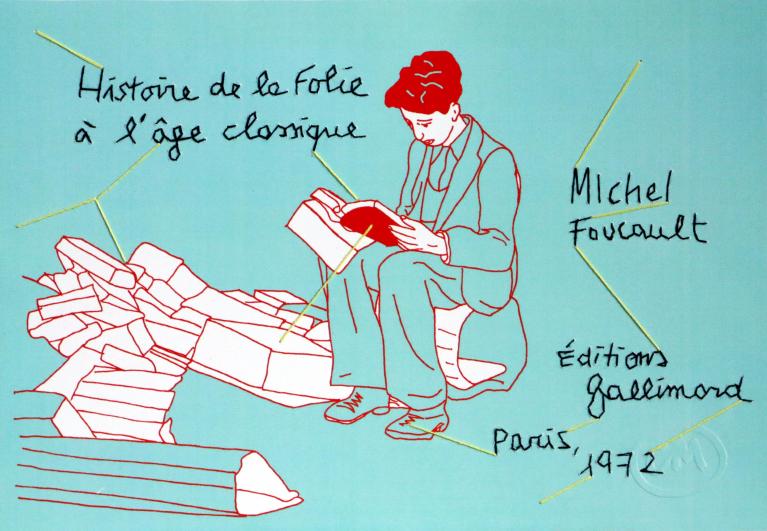 Histoire de la Folie
à l'âge classique
MIchel
Foucault
Éditions
Gallimard
Paris,
1972